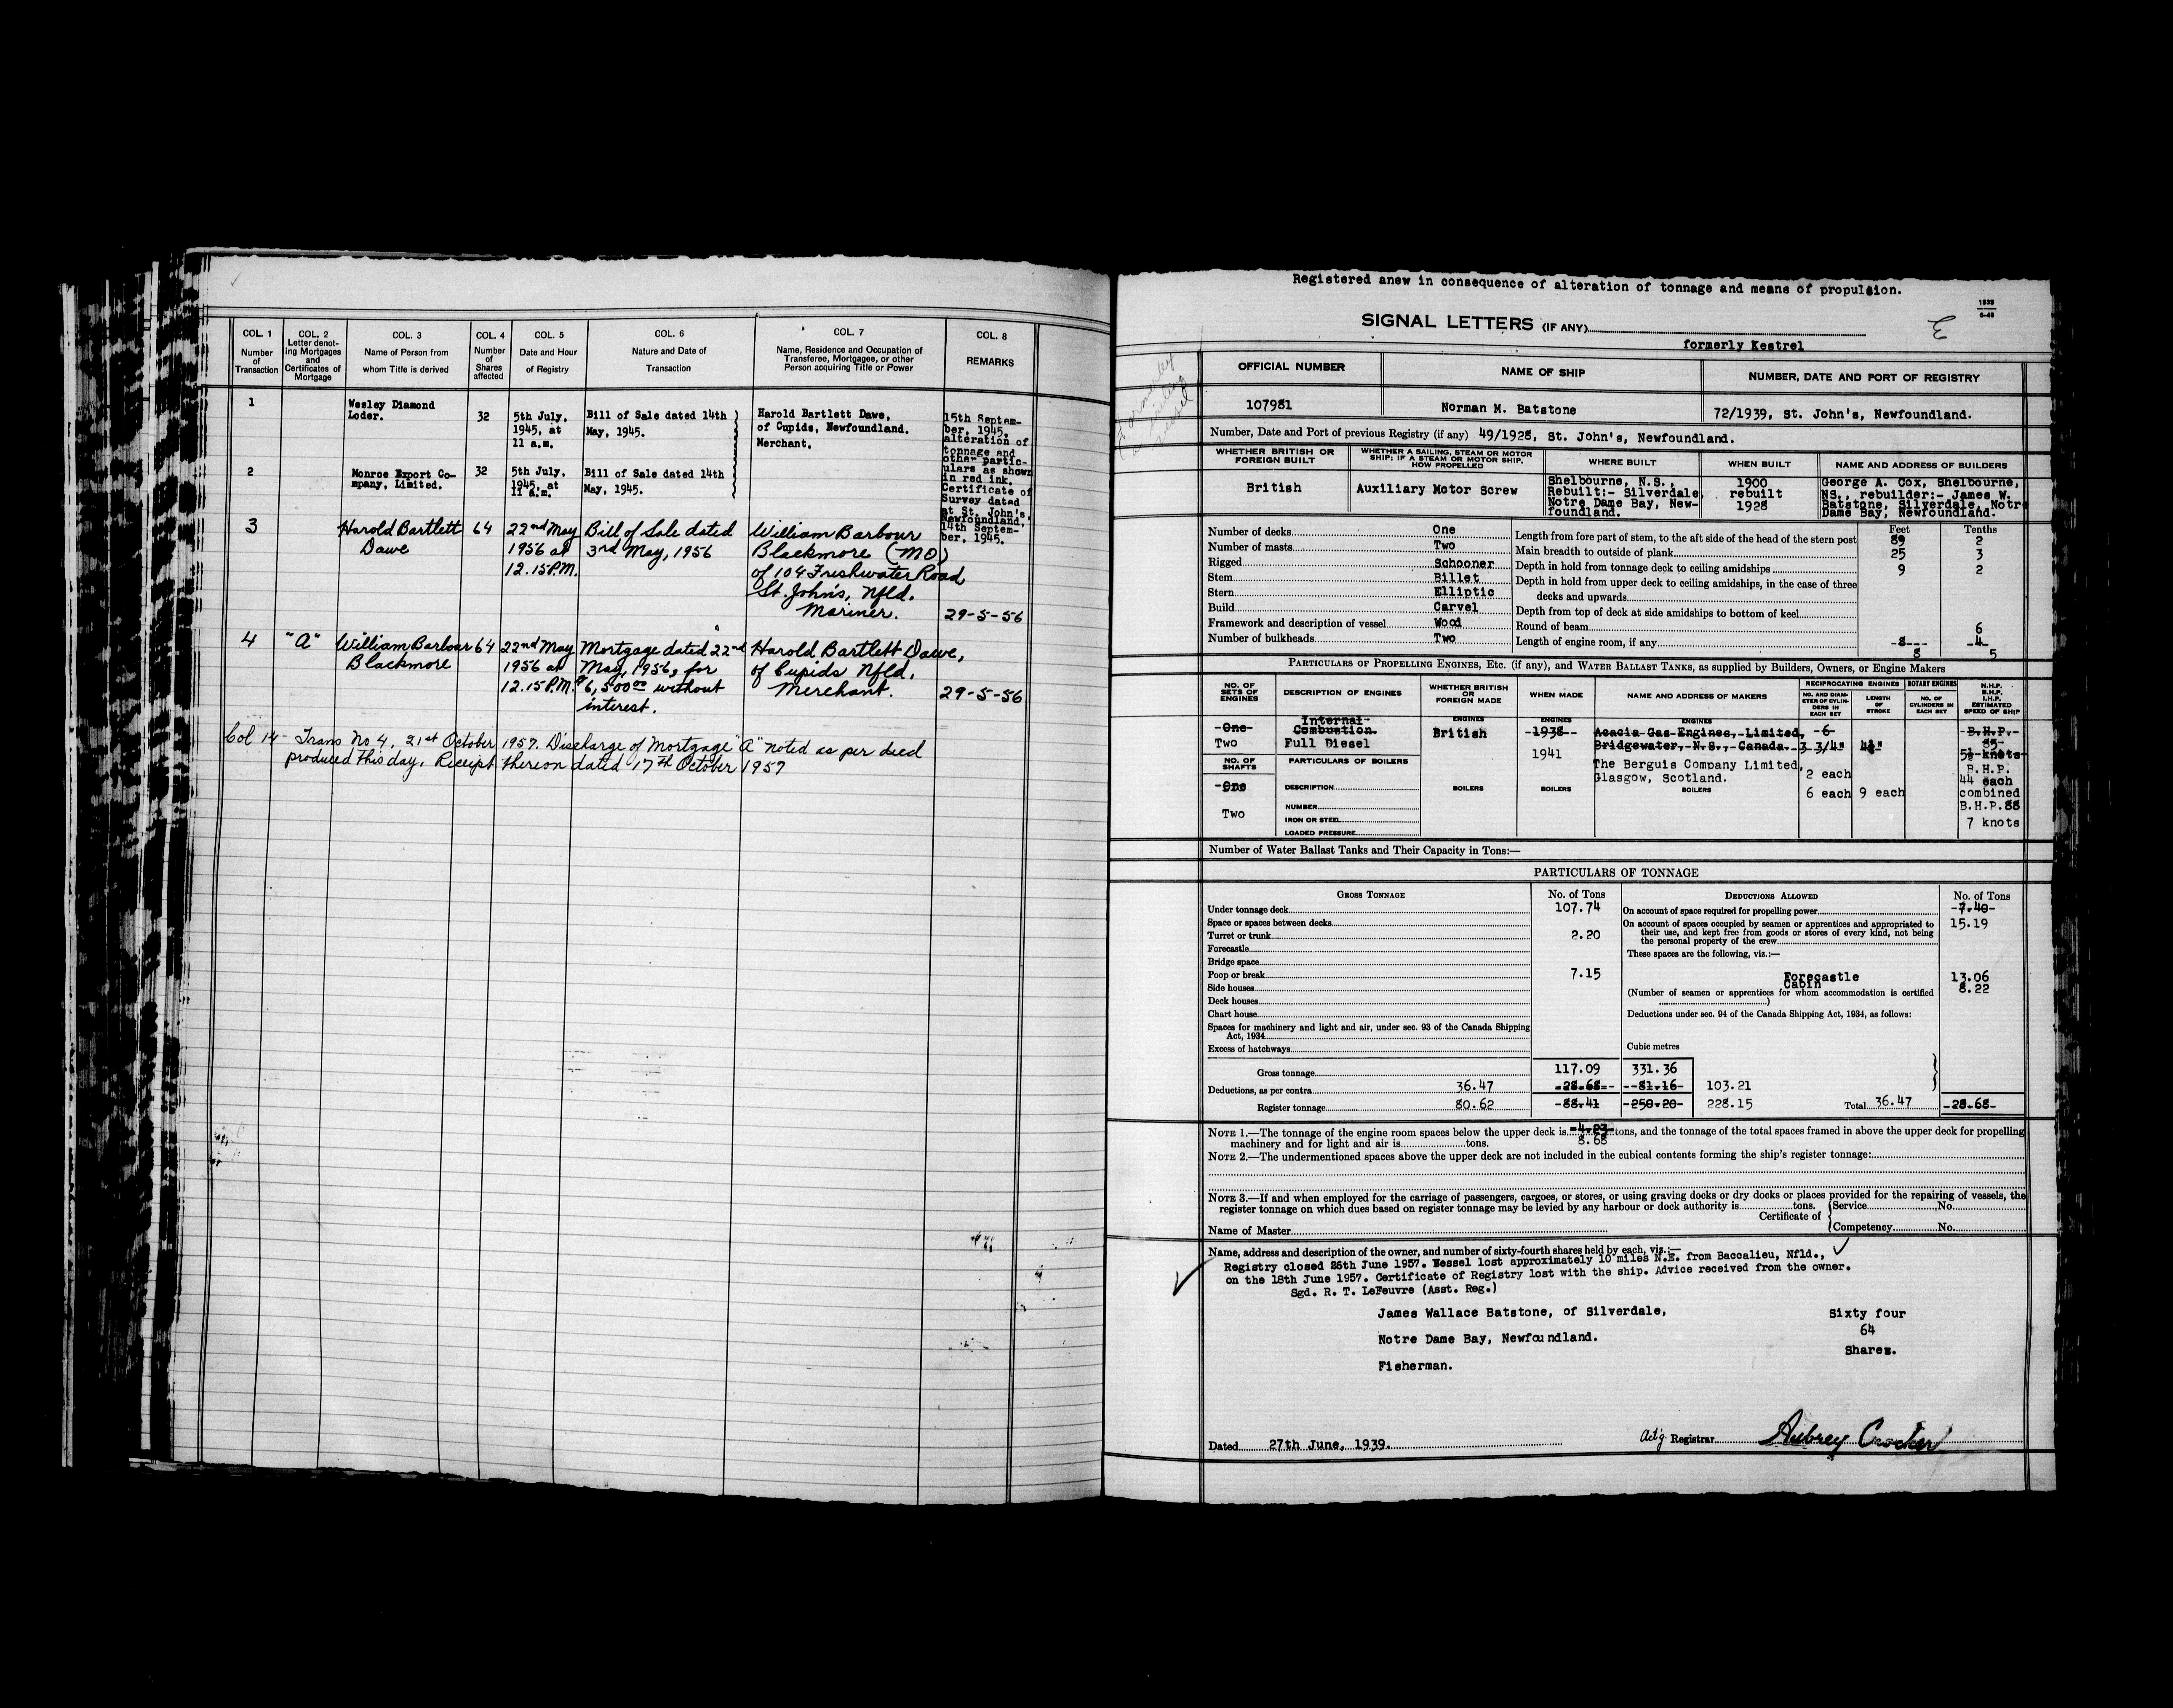 COL. 1 COL. 2 COL. 3 COL. 4 COL. 5 COL. 6 COL. 7 COL. 8
Number of Transaction
Letter denoting Mortgages and Certificates of Mortgage
Name of Person from whom Title is derived
Number of Shares affected
Date and Hour of Registry
Nature and Date of Transaction
Name, Residence and Occupation of Transferee, Mortgagee, or other Person acquiring Title or Power
REMARKS
1
Wesley Diamond
Loder.
32
5th July,
1945, at
11 a.m.
Bill of Sale dated 14th
May, 1945.
Harold Bartlett Dawe,
of Cupids, Newfoundland.
Merchant.
15th Septem-
ber, 1945,
alteration of
tonnage and
other partic-
ulars as shown
in red ink.
Certificate of
Survey dated
at St. John's,
Newfoundland,
14th Septem-
ber, 1945.
2
Monroe Export Co-
mpany, Limited.
32
5th July,
1945, at
11 a.m.
Bill of Sale dated 14th
May, 1945.
3
Harold Bartlett
Dawe
64
22nd May
1956 at
12.15 P.M.
Bill of Sale dated
3rd May, 1956
William Barbour
Blackmore (MO)
of 104 Freshwater Road,
St. John's, Nfld.
Mariner.
29-5-56
4
"A"
William Barbour
Blackmore
64
22nd May
1956 at
12.15 P.M.
Mortgage dated 22nd
May, 1956, for
$6,500.00 without
interest.
Harold Bartlett Dawe,
of Cupids Nfld.
Merchant.
29-5-56
Col 14 - Trans No 4. 21st October 1957. Discharge of Mortgage "A" noted as per deed
produced this day. Receipt thereon dated 17th October 1957
Registered anew in consequence of alteration of tonnage and means of propulsion.
1938
6-48
SIGNAL LETTERS (IF ANY)
E
formerly Kestrel
OFFICIAL NUMBER NAME OF SHIP NUMBER, DATE AND PORT OF REGISTRY
107981 Norman M. Batstone 72/1939, St. John's, Newfoundland.
Number, Date and Port of previous Registry (if any) 49/1928, St. John's, Newfoundland.
WHETHER BRITISH OR FOREIGN BUILT
WHETHER A SAILING, STEAM OR MOTOR SHIP; IF A STEAM OR MOTOR SHIP, HOW PROPELLED
WHERE BUILT
WHEN BUILT
NAME AND ADDRESS OF BUILDERS
British
Auxiliary Motor Screw
Shelbourne, N.S.,
Rebuilt:- Silverdale,
Notre Dame Bay, New-
foundland.
1900
rebuilt
1928
George A. Cox, Shelbourne,
NS., rebuilder:- James W.
Batstone, Silverdale, Notre
Dame Bay, Newfoundland.
Number of decks One
Number of masts Two
Rigged Schooner
Stem Billet
Stern Elliptic
Build Carvel
Framework and description of vessel Wood
Number of bulkheads Two
Feet Tenths
Length from fore part of stem, to the aft side of the head of the stern post 89 2
Main breadth to outside of plank 25 3
Depth in hold from tonnage deck to ceiling amidships 9 2
Depth in hold from upper deck to ceiling amidships, in the case of three
decks and upwards
Depth from top of deck at side amidships to bottom of keel
Round of beam 6
Length of engine room, if any -8--- -4-
8 5
PARTICULARS OF PROPELLING ENGINES, ETC. (if any), and WATER BALLAST TANKS, as supplied by Builders, Owners, or Engine Makers
NO. OF SETS OF ENGINES
DESCRIPTION OF ENGINES
WHETHER BRITISH OR FOREIGN MADE
WHEN MADE
NAME AND ADDRESS OF MAKERS
RECIPROCATING ENGINES
NO. AND DIAMETER OF CYLINDERS IN EACH SET
LENGTH OF STROKE
ROTARY ENGINES
NO. OF CYLINDERS IN EACH SET
N.H.P.
B.H.P.
I.H.P.
ESTIMATED
SPEED OF SHIP
-One-
Two
Internal-
Combustion.
Full Diesel
ENGINES
British
ENGINES
-1938--
1941
ENGINES
Acacia Gas Engines, Limited,
Bridgewater, N.S., Canada.
The Berguis Company Limited,
Glasgow, Scotland.
-6-
3 3/4"
2 each
6 each
9 each
-B.H.P.-
5½ knots-
B.H.P.
44 each
combined
B.H.P.88
7 knots
NO. OF SHAFTS
-One
Two
PARTICULARS OF BOILERS
DESCRIPTION
NUMBER
IRON OR STEEL
LOADED PRESSURE
BOILERS BOILERS BOILERS
Number of Water Ballast Tanks and Their Capacity in Tons:—
PARTICULARS OF TONNAGE
GROSS TONNAGE No. of Tons
Under tonnage deck 107.74
Space or spaces between decks
Turret or trunk 2.20
Forecastle
Bridge space
Poop or break 7.15
Side houses
Deck houses
Chart house
Spaces for machinery and light and air, under sec. 93 of the Canada Shipping
Act, 1934
Excess of hatchways
DEDUCTIONS ALLOWED No. of Tons
On account of space required for propelling power -7.40-
15.19
On account of spaces occupied by seamen or apprentices and appropriated to
their use, and kept free from goods or stores of every kind, not being
the personal property of the crew
These spaces are the following, viz.:—
Forecastle 13.06
Cabin 8.22
(Number of seamen or apprentices for whom accommodation is certified
)
Deductions under sec. 94 of the Canada Shipping Act, 1934, as follows:
Cubic metres
Gross tonnage 117.09 331.36
Deductions, as per contra 36.47 -28.68- --81.16- 103.21
Register tonnage 80.62 -88.41 -250.20- 228.15 Total 36.47 -28.68-
NOTE 1.—The tonnage of the engine room spaces below the upper deck is -4.23- tons, and the tonnage of the total spaces framed in above the upper deck for propelling
8.68
machinery and for light and air is tons.
NOTE 2.—The undermentioned spaces above the upper deck are not included in the cubical contents forming the ship's register tonnage:
NOTE 3.—If and when employed for the carriage of passengers, cargoes, or stores, or using graving docks or dry docks or places provided for the repairing of vessels, the
register tonnage on which dues based on register tonnage may be levied by any harbour or dock authority is tons.
Name of Master
Certificate of
Service No.
Competency No.
Name, address and description of the owner, and number of sixty-fourth shares held by each, viz.:—
Registry closed 26th June 1957. Vessel lost approximately 10 miles N.E. from Baccalieu, Nfld.,
on the 18th June 1957. Certificate of Registry lost with the ship. Advice received from the owner.
Sgd. R. T. LeFeuvre (Asst. Reg.)
James Wallace Batstone, of Silverdale,
Notre Dame Bay, Newfoundland.
Fisherman.
Sixty four
64
Shares.
Dated 27th June, 1939.
Act'g Registrar Aubrey Crocker